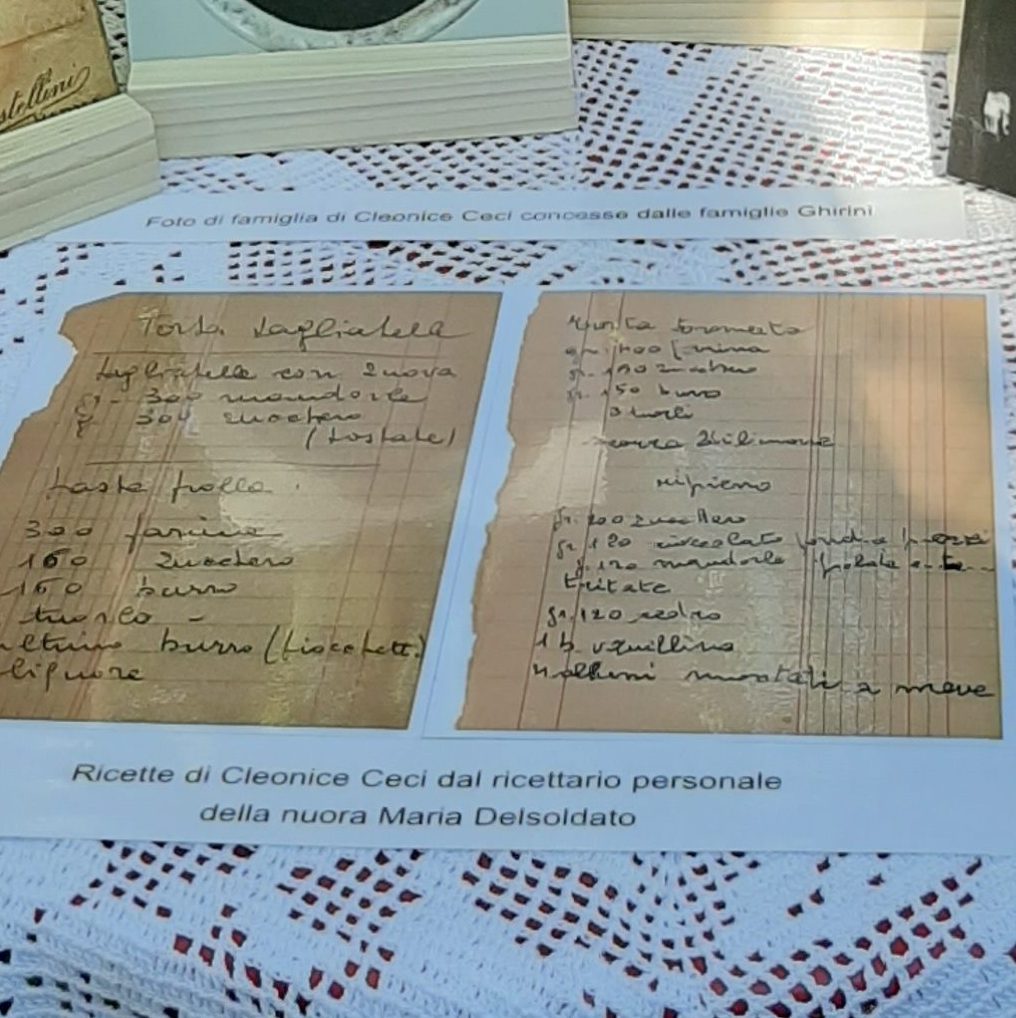 stellini
Foto di famiglia di Cleonice Ceci concesse dalle famiglie Ghirini
Torta tagliatelle
tagliatelle con 2 uova
gr. 300 mandorle
300 zucchero
(tostate)
pasta frolla
300 farina
160 zucchero
160 burro
tuorlo
burro (fiocchett.)
liquore
gr. 400 farina
gr. 150 burro
3 turli
scorza di limone
ripieno
gr. 200 zucchero
gr. 120 cioccolato
gr. 120 mandorle pelate e
tritate
gr. 120 cedro
1 b. vanillina
4 albumi montati a neve
Ricette di Cleonice Ceci dal ricettario personale
della nuora Maria Delsoldato